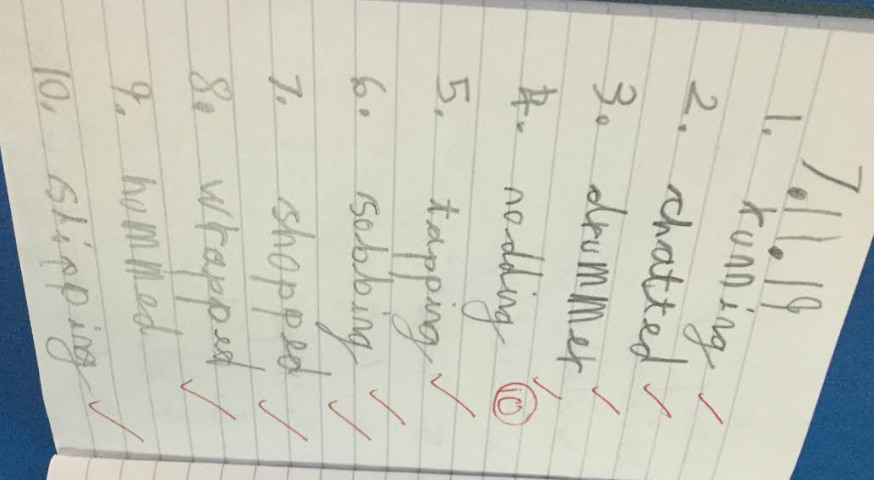 7.11.19
1. running
2. chatted
3. drummer
4. nodding
10
5. tapping
6. sobbing
7. shopped
8. wrapped
9. hummed
10. slipping